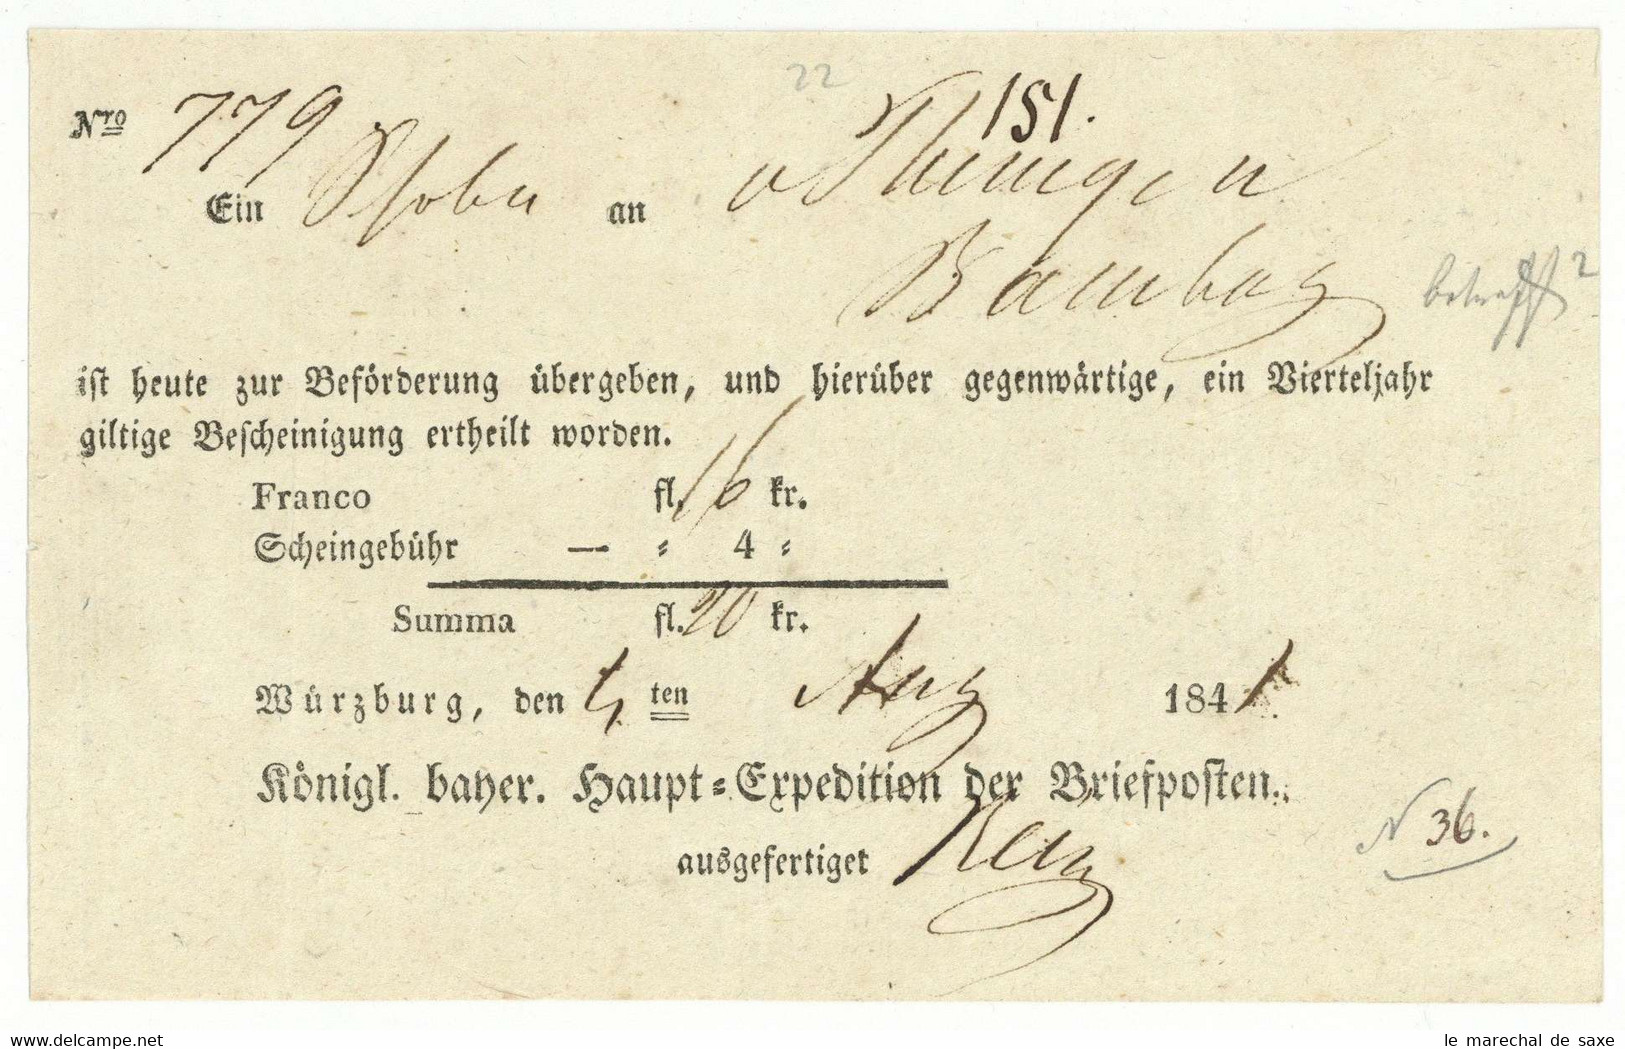 22
Nro 779 151.
Ein an v Thüngen
Bamberg
2
ist heute zur Beförderung übergeben, und hierüber gegenwärtige, ein Vierteljahr
giltige Bescheinigung ertheilt worden.
Franco fl. 16 kr.
Scheingebühr — " 4 "
Summa fl. 20 kr.
Würzburg, den 4ten Aug 1841
Königl. bayer. Haupt-Expedition der Briefposten.
ausgefertiget
N 36.
delcampe.net
le marechal de saxe